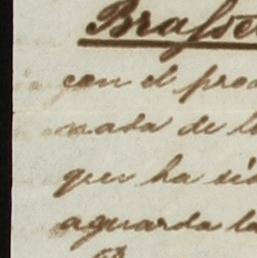 Brasse
con el pro
nada de l
que ha sid
aguarda la